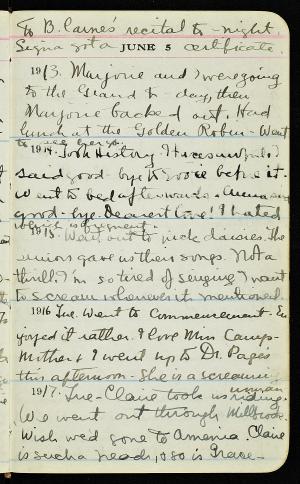 To B. Carne's recital to-night.
Signa got a JUNE 5 certificate.
1913. Marjorie and I were going
to the Grand to-day, then
Marjorie backed out. Had
lunch at the Golden Robin - Went
to
1914. Took History I
said good-bye to before it.
Went to bed afterwards.
good-bye. Dearest love! I hated
which is
1915. Went out to pick daisies. The
juniors gave us their songs. Not a
thrill. I'm so tired of singing I want
to scream whenever it's mentioned.
1916 Tue. Went to Commencement. En
joyed it rather. I love Miss Camp.
Mother & I went up to Dr. Page's
this afternoon. She is a screaming
woman
1917. Tue - Claire took us riding.
We went out through Millbrook.
Wish we'd gone to Amenia. Claire
is such a peach, & so is Grace -